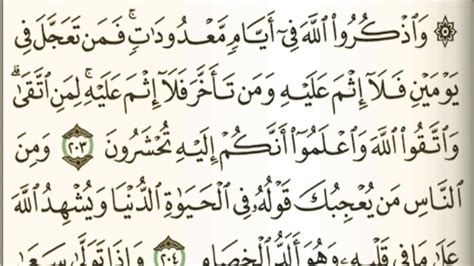 ۞ وَٱذْكُرُوا۟ ٱللَّهَ فِىٓ أَيَّامٍ مَّعْدُودَٰتٍ ۚ فَمَن تَعَجَّلَ فِى
يَوْمَيْنِ فَلَآ إِثْمَ عَلَيْهِ وَمَن تَأَخَّرَ فَلَآ إِثْمَ عَلَيْهِ ۚ لِمَنِ ٱتَّقَىٰ ۗ
وَٱتَّقُوا۟ ٱللَّهَ وَٱعْلَمُوٓا۟ أَنَّكُمْ إِلَيْهِ تُحْشَرُونَ ٢٠٣ وَمِنَ
ٱلنَّاسِ مَن يُعْجِبُكَ قَوْلُهُۥ فِى ٱلْحَيَوٰةِ ٱلدُّنْيَا وَيُشْهِدُ ٱللَّهَ
عَلَىٰ مَا فِى قَلْبِهِۦ وَهُوَ أَلَدُّ ٱلْخِصَامِ ٢٠٤ وَإِذَا تَوَلَّىٰ سَعَىٰ